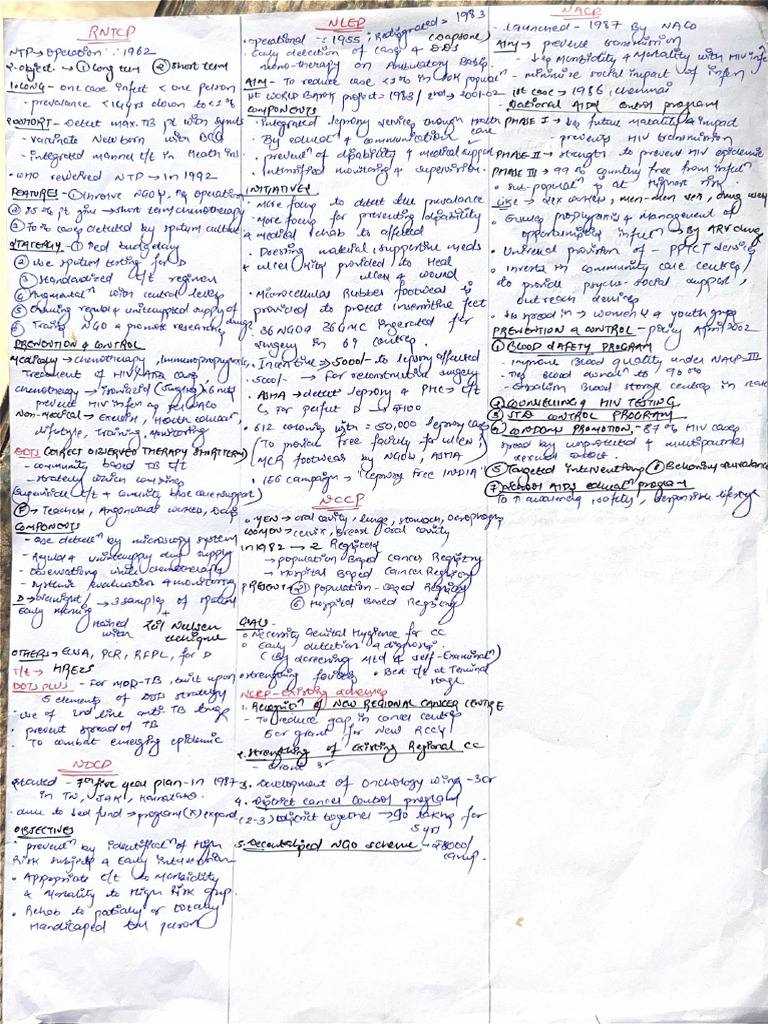 RNTCP
NTP → operation :: 1962
2-object → ① long term ② short term
① LONG - one case infect < one person
- prevalence < 14yrs down to < 1%
② SHORT - Detect max. TB pt with
- vaccinate Newborn with BCG
- integrated manner t/t in Health
• WHO reviewed NTP → in 1992
FEATURES - ① involve NGO's,
② → short term chemotherapy
③ 70% cases detected by sputum culture
STRATERGY - ① ied budgetary
② Use sputum testing for D
③ Standardized t/t regimen
④ Augmentatn with central level
⑤ Ensuring regular & uninterrupted supply of drugs
⑥ Training NGO & promote research
PREVENTION & CONTROL
Medically → chemotherapy, immunoprophylaxis
Treatment of HIV/AIDS
chemotherapy → isoniazid (5mg/kg) × 6 mnth
prevent HIV infen WHO
Non-medical → Exercise, Health educan
lifestyle, Training, Monitoring
DOTS (DIRECT OBSERVED THERAPY SHORT TERM)
- community based TB t/t
- strategy which combine
(Supervised t/t + community base care support)
Ⓟ → Teachers, Anganwadi worker, Dais
COMPONENTS
- case detecn by microscopy system
- Regular & uninterrupted drug supply
- observation while chemotherapy
- systemic evaluation & monitoring
D → overnight / early morning → 3 samples of sputum
+
stained with Zeil Neelsen technique
OTHERS → ELISA, PCR, RFPL, for D
T/t → HREZS
DOTS PLUS - For MDR-TB, built upon
5 elements of DOTS strategy
• use of 2nd line anti TB drugs
• prevent spread of TB
• To combat emerging epidemic
NDCP
started - 7th five year plan - in 1987
in TN, J&K, Karnataka.
• due to fund → program (X) expand
OBJECTIVES
• preventn by identificatn of High
Risk subjects & Early intervention
• Appropriate t/t to Morbidity
& Mortality to High Risk grup.
• Rehab to partially or totally
Handicaped person
NLEP
• operational - : 1955; Redesignated = 1983
• Early detection of cases & DDS (Dapsone)
mono-therapy on Ambulatory Basis
AIM - To reduce case <1% in 10K population
1st WORLD BANK project = 1983 / 2nd → 2001-02
COMPONENTS
• Integrated leprosy services through Health care
• By educatn & communication
• preventn of disability & medical support
• Intensified monitoring & supervision
INITIATIVES
• More focus to detect prevalence
• More focus for preventing disability
& medical rehab to affected
• Dressing material, supportive meds
& ulcer kits provided to Heal
ulcer & wound
• Microcellular Rubber footwear is
provided to protect insensitive feet
• 36 NGOs 36 GMC for
surgery in 69 centres.
• Incentive → 5000/- to leprosy affected
• 5000/- → For reconstructive surgery
• ASHA → detect leprosy & PHC → t/t
↳ for perfect D → ₹100
• 612 colonies with = 50,000 leprosy cases
(To provide free facility for ulcer)
(MCR footwear by NGOs, ASHA)
• IEC campaign → 'leprosy free INDIA'
NCCP
• MEN → oral cavity, lungs, stomach, oesophagus
WOMEN → cervix, Breast oral cavity
In 1982 → 2 Registries
→ population Based Cancer Registry
→ Hospital Based Cancer Registry
PRESENT → population-Based Registry
⑥ Hospital Based Registry
GOALS
• Necessity Genital Hygiene for CC
• Early detection & diagnosis
(By screening Mtd & self-Examinatn)
• strengthing facilities • Best t/t at Terminal stage
NCCP - Existing schemes
1. Recognitn OF NEW REGIONAL CANCER CENTRE
- To reduce gap in cancer centres
5cr grant for New RCC
2. Strengthing of Existing Regional CC
- Grant 3cr
3. Development of Onchology wing - 3cr
4. District cancer control program
(2-3) district together → Go taking for
5 yrs
5. Decentralized NGO scheme → ₹8000/
camp.
NACP
• Launched - 1987 By NACO
AIM → prevent transmission
↓es Morbidity & Mortality with HIV infen
- minimize social impact of infen
1st case → 1986, Chennai
• National AIDS control program
PHASE I → ↓es future Mortality & impact
- prevents HIV transmission
PHASE II → strength to prevent HIV epidemic
PHASE III → 99% country free from infen
• Sub-populatn at Highest risk.
Like → sex workers, men-men sex, drug users
• Ensures prophylaxis & management of
opportunistic infen → By ARV drug
• Universal provision of - PPTCT services
• Invests in community care centres
to provide psycho-social support,
outreach services
• ↓es spread in → women & youth grup
PREVENTION & CONTROL - policy April 2002
① BLOOD SAFETY PROGRAM
- Improve Blood quality under NACP-III
- ↑es Blood donatn to 90%
- Establish Blood storage centres in
② COUNSELLING & HIV TESTING
③ STD CONTROL PROGRAM
④ CONDOMS PROMOTION - 87% HIV cases
spread by unprotected & multipartner
sexual contact.
⑤ Targeted interventions ⑥ Behaviour surveillance
⑦ School AIDS educatn program
To ↑ awareness, safety, responsible lifestyle